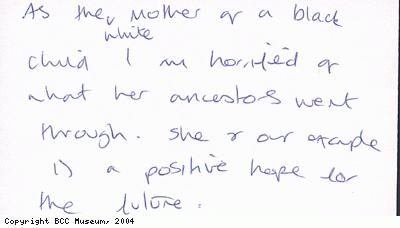 As the white mother of a black
child I am horrified of
what her ancestors went
through. She r our example
is a positive hope for
the future.
Copyright BCC Museum, 2004